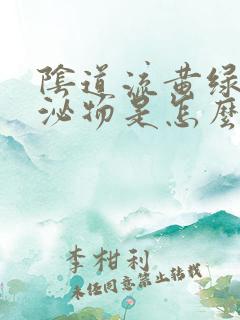 陰道流黄绿
泌物是怎麼
李柑利
未经同意禁止转载